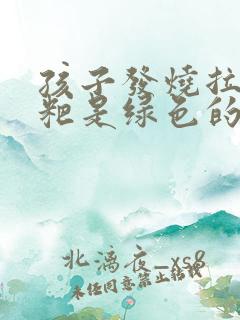 孩子發燒拉
粑是绿色的
北漓夜_xs8
未经同意禁止转载